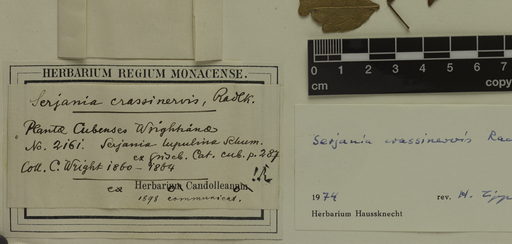 HERBARIUM REGIUM MONACENSE.
Serjania crassinervis, Radlk.
Plantæ Cubenses Wrightianæ
No. 2161. Serjania lupulina Schum.
ex Griseb. Cat. cub. p. 287
Coll. C. Wright 1860–1864
!R
ex Herbario Candolleano
1898 communicat.
0 1 2 3 4 5 6 7
cm
copy
Serjania crassinervis Rad
1974 rev. H.
Herbarium Haussknecht